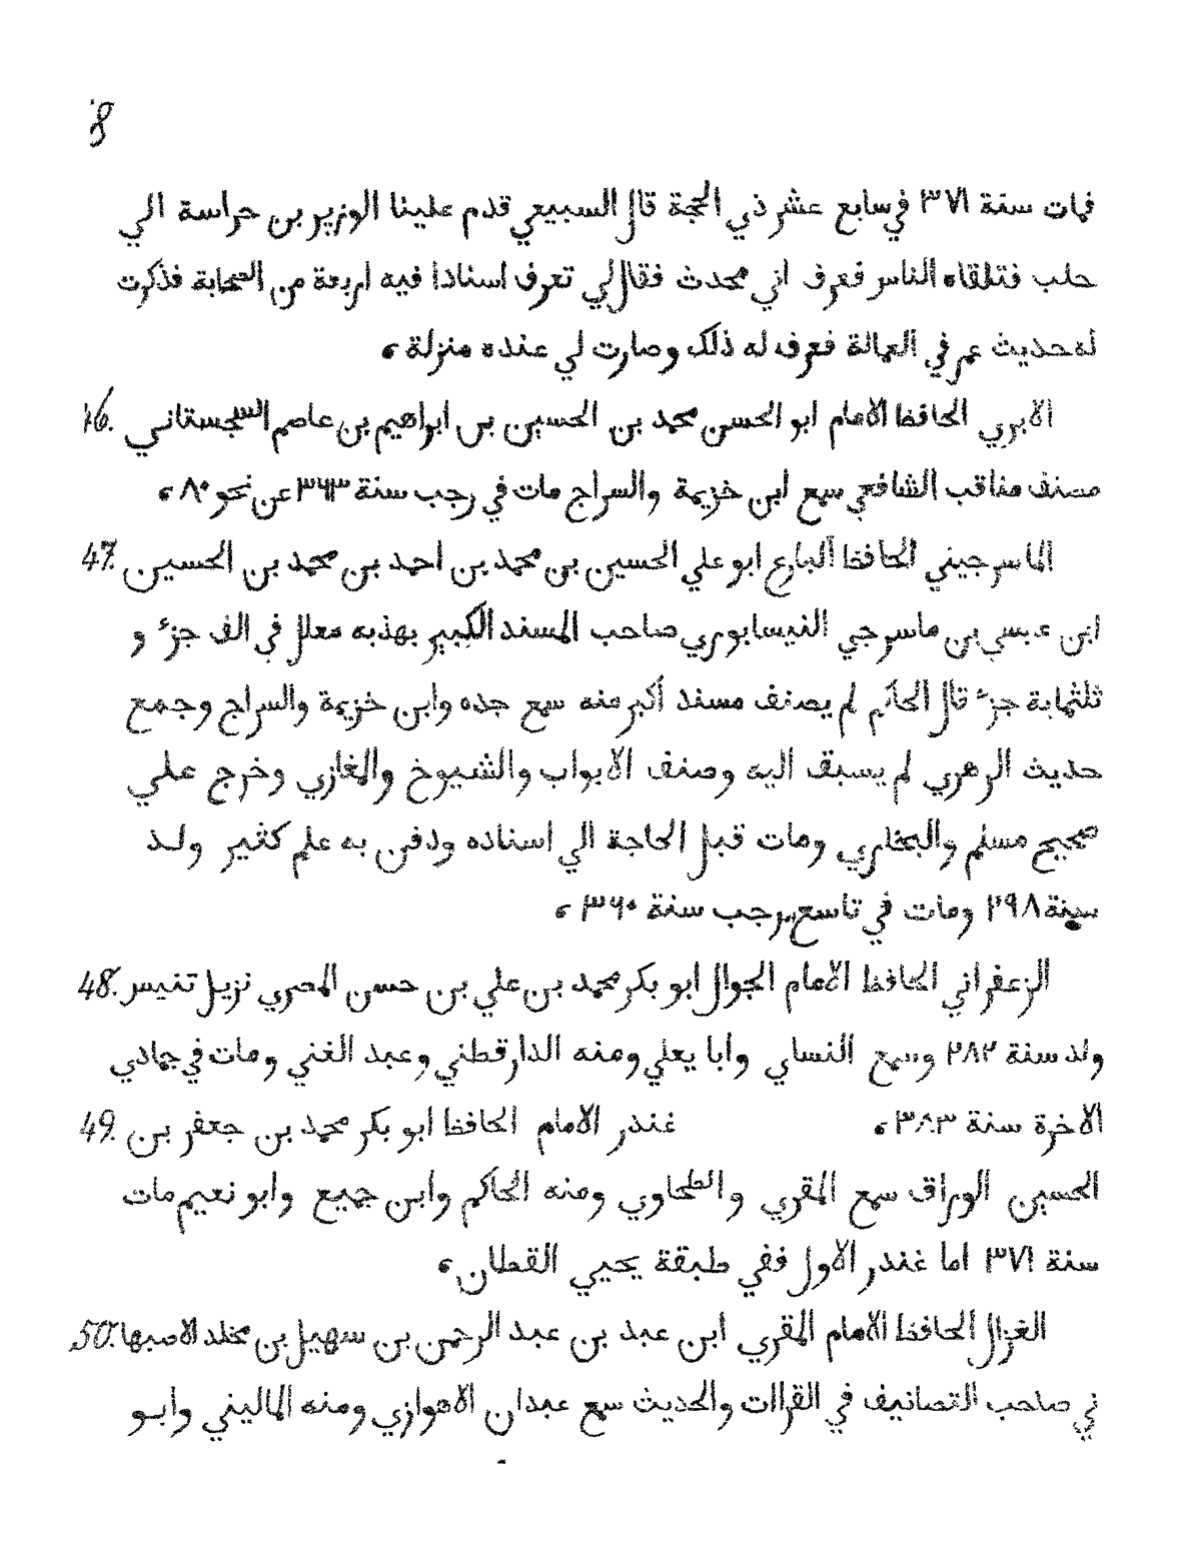 8
فمات سنة ٣٧١ في سابع عشر ذي الحجة قال السبيعي قدم علينا الوزير بن حراسة الي
حلب فتلقاه الناس فعرف اني محدث فقال لي تعرف اسنادا فيه اربعة من الصحابة فذكرت
له حديث عمر في العمالة فعرف له ذلك وصارت لي عنده منزلة ،
46. الابري الحافظ الامام ابو الحسن محمد بن الحسين بن ابراهيم بن عاصم السجستاني
مصنف مناقب الشافعي سمع ابن خزيمة والسراج مات في رجب سنة ٣٦٣ عن نحو ٨٠ ،
47. الماسرجيني الحافظ البارع ابو علي الحسين بن محمد بن احمد بن محمد بن الحسين
ابن عيسي بن ماسرجي النيسابوري صاحب المسند الكبير بهذبه معلل في الف جزء و
ثلثماية جزء قال الحاكم لم يصنف مسند أكبر منه سمع جده وابن خزيمة والسراج وجمع
حديث الزهري لم يسبق اليه وصنف الابواب والشيوخ والمغازي وخرج علي
صحيح مسلم والبخاري ومات قبل الحاجة الي اسناده ودفن به علم كثير ولد
سنة ٢٩٨ ومات في تاسع رجب سنة ٣٦٠ ،
48. الزعفراني الحافظ الامام الجوال ابو بكر محمد بن علي بن حسن المصري نزيل تنيس
ولد سنة ٢٨٢ وسمع النساي وابا يعلي ومنه الدارقطني وعبد الغني ومات في جمادي
الاخرة سنة ٣٨٣ ،
49. غندر الامام الحافظ ابو بكر محمد بن جعفر بن
الحسين الوراق سمع المقري والطحاوي ومنه الحاكم وابن جميع وابو نعيم مات
سنة ٣٧١ اما غندر الاول ففي طبقة يحيي القطان ،
50. الغزال الحافظ الامام المقري ابن عبد بن عبد الرحمن بن سهيل بن مخلد الاصبها
ني صاحب التصانيف في القراات والحديث سمع عبدان الاهوازي ومنه الماليني وابو